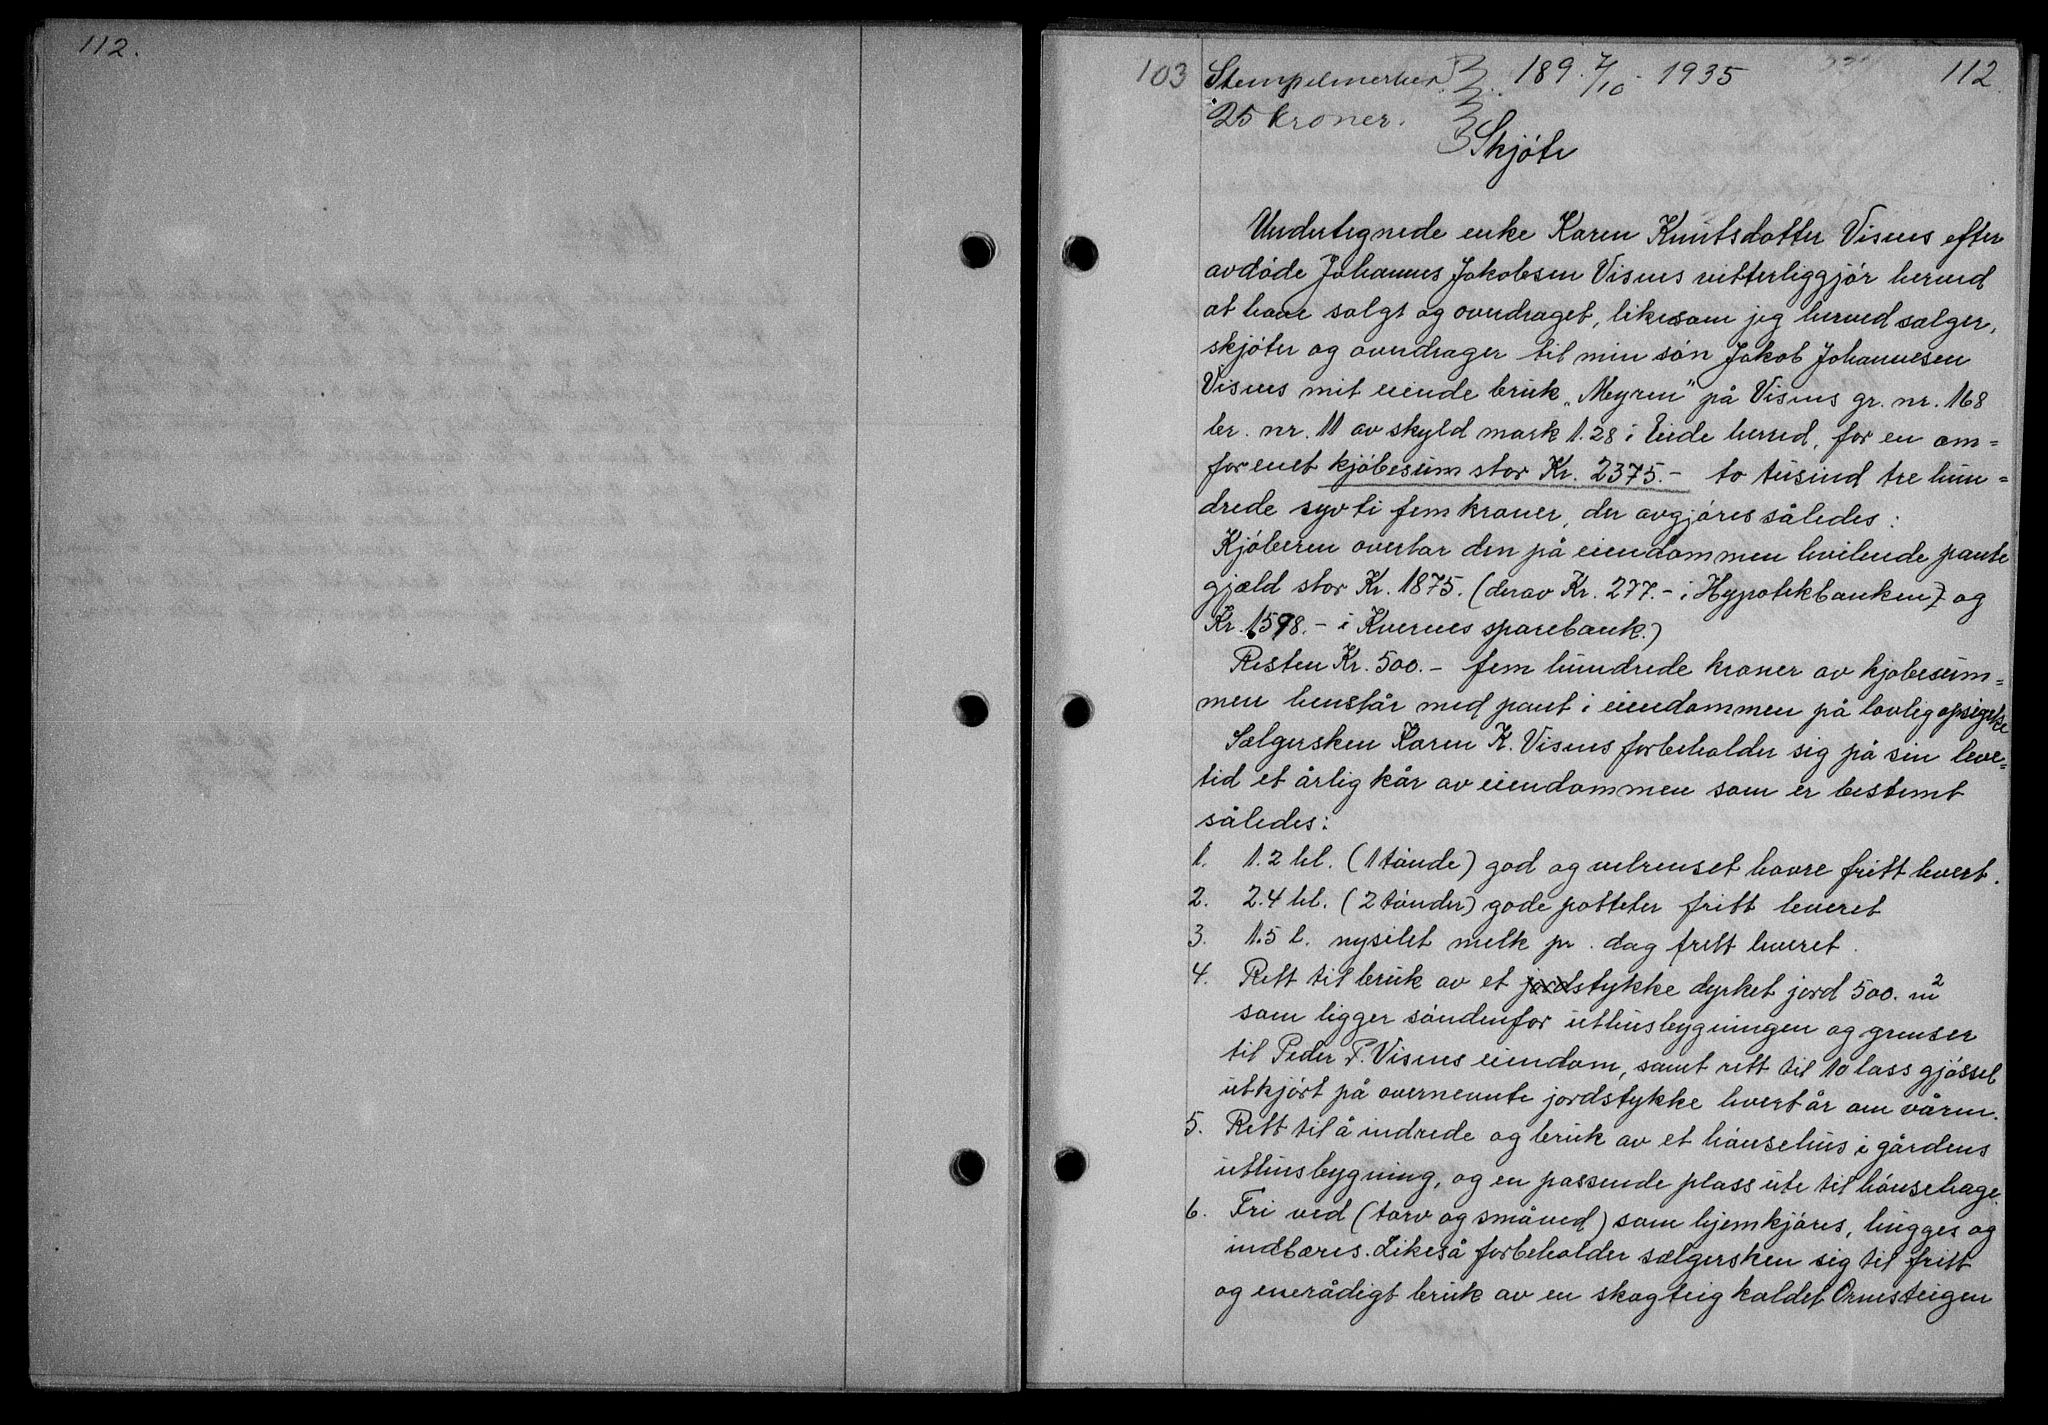 112.
103 Stempelmerker 189. 7/10 - 1935 112
25 kroner.
Skjöte
Undertegnede enke Karen Knutsdatter Visnes efter
avdöde Johannes Jakobsen Visnes vitterliggjör herved
at have solgt og overdraget, likesom jeg herved sælger,
skjöter og overdrager til min sön Jakob Johannesen
Visnes mit eiende bruk „Myren" på Visnes gr. nr. 168
br. nr. 11 av skyld mark 1.28 i Eide herred, for en om=
forenet kjöbesum stor Kr. 2375.- to tusind tre hun=
drede syvti fem kroner, der avgjöres således:
Kjöberen overtar den på eiendommen hvilende pante
gjæld stor Kr. 1875. (derav Kr. 277.- i Hypotekbanken) og
Kr. 1598.- i Kvernes sparebank.)
Resten Kr. 500.- fem hundrede kroner av kjöbesum=
men henstår med pant i eiendommen på lovlig opsigelse
Sælgersken Karen K. Visnes forbeholder sig på sin leve=
tid et årlig kår av eiendommen som er bestemt
således:
1. 1.2 hl. (1 tönde) god og velrenset havre fritt levert.
2. 2.4 hl. (2 tönder) gode potteter fritt leveret
3. 1.5 l. nysilet melk pr. dag fritt leveret.
4. Rett til bruk av et jordstykke dyrket jord 500. m2
som ligger söndenfor uthusbygningen og grenser
til Peder P. Visnes eiendom, samt rett til 10 lass gjödsel
utkjört på overnevnte jordstykke hvert år om våren.
5. Rett til å indrede og bruk av et hönsehus i gårdens
uthusbygning, og en passende plass ute til hönsehage.
6. Fri ved (torv og småved) som hjemkjöres, hugges og
indbæres. Likeså forbeholder sælgersken sig til fritt
og enerådigt bruk av en skogteig kaldet Ornesteigen